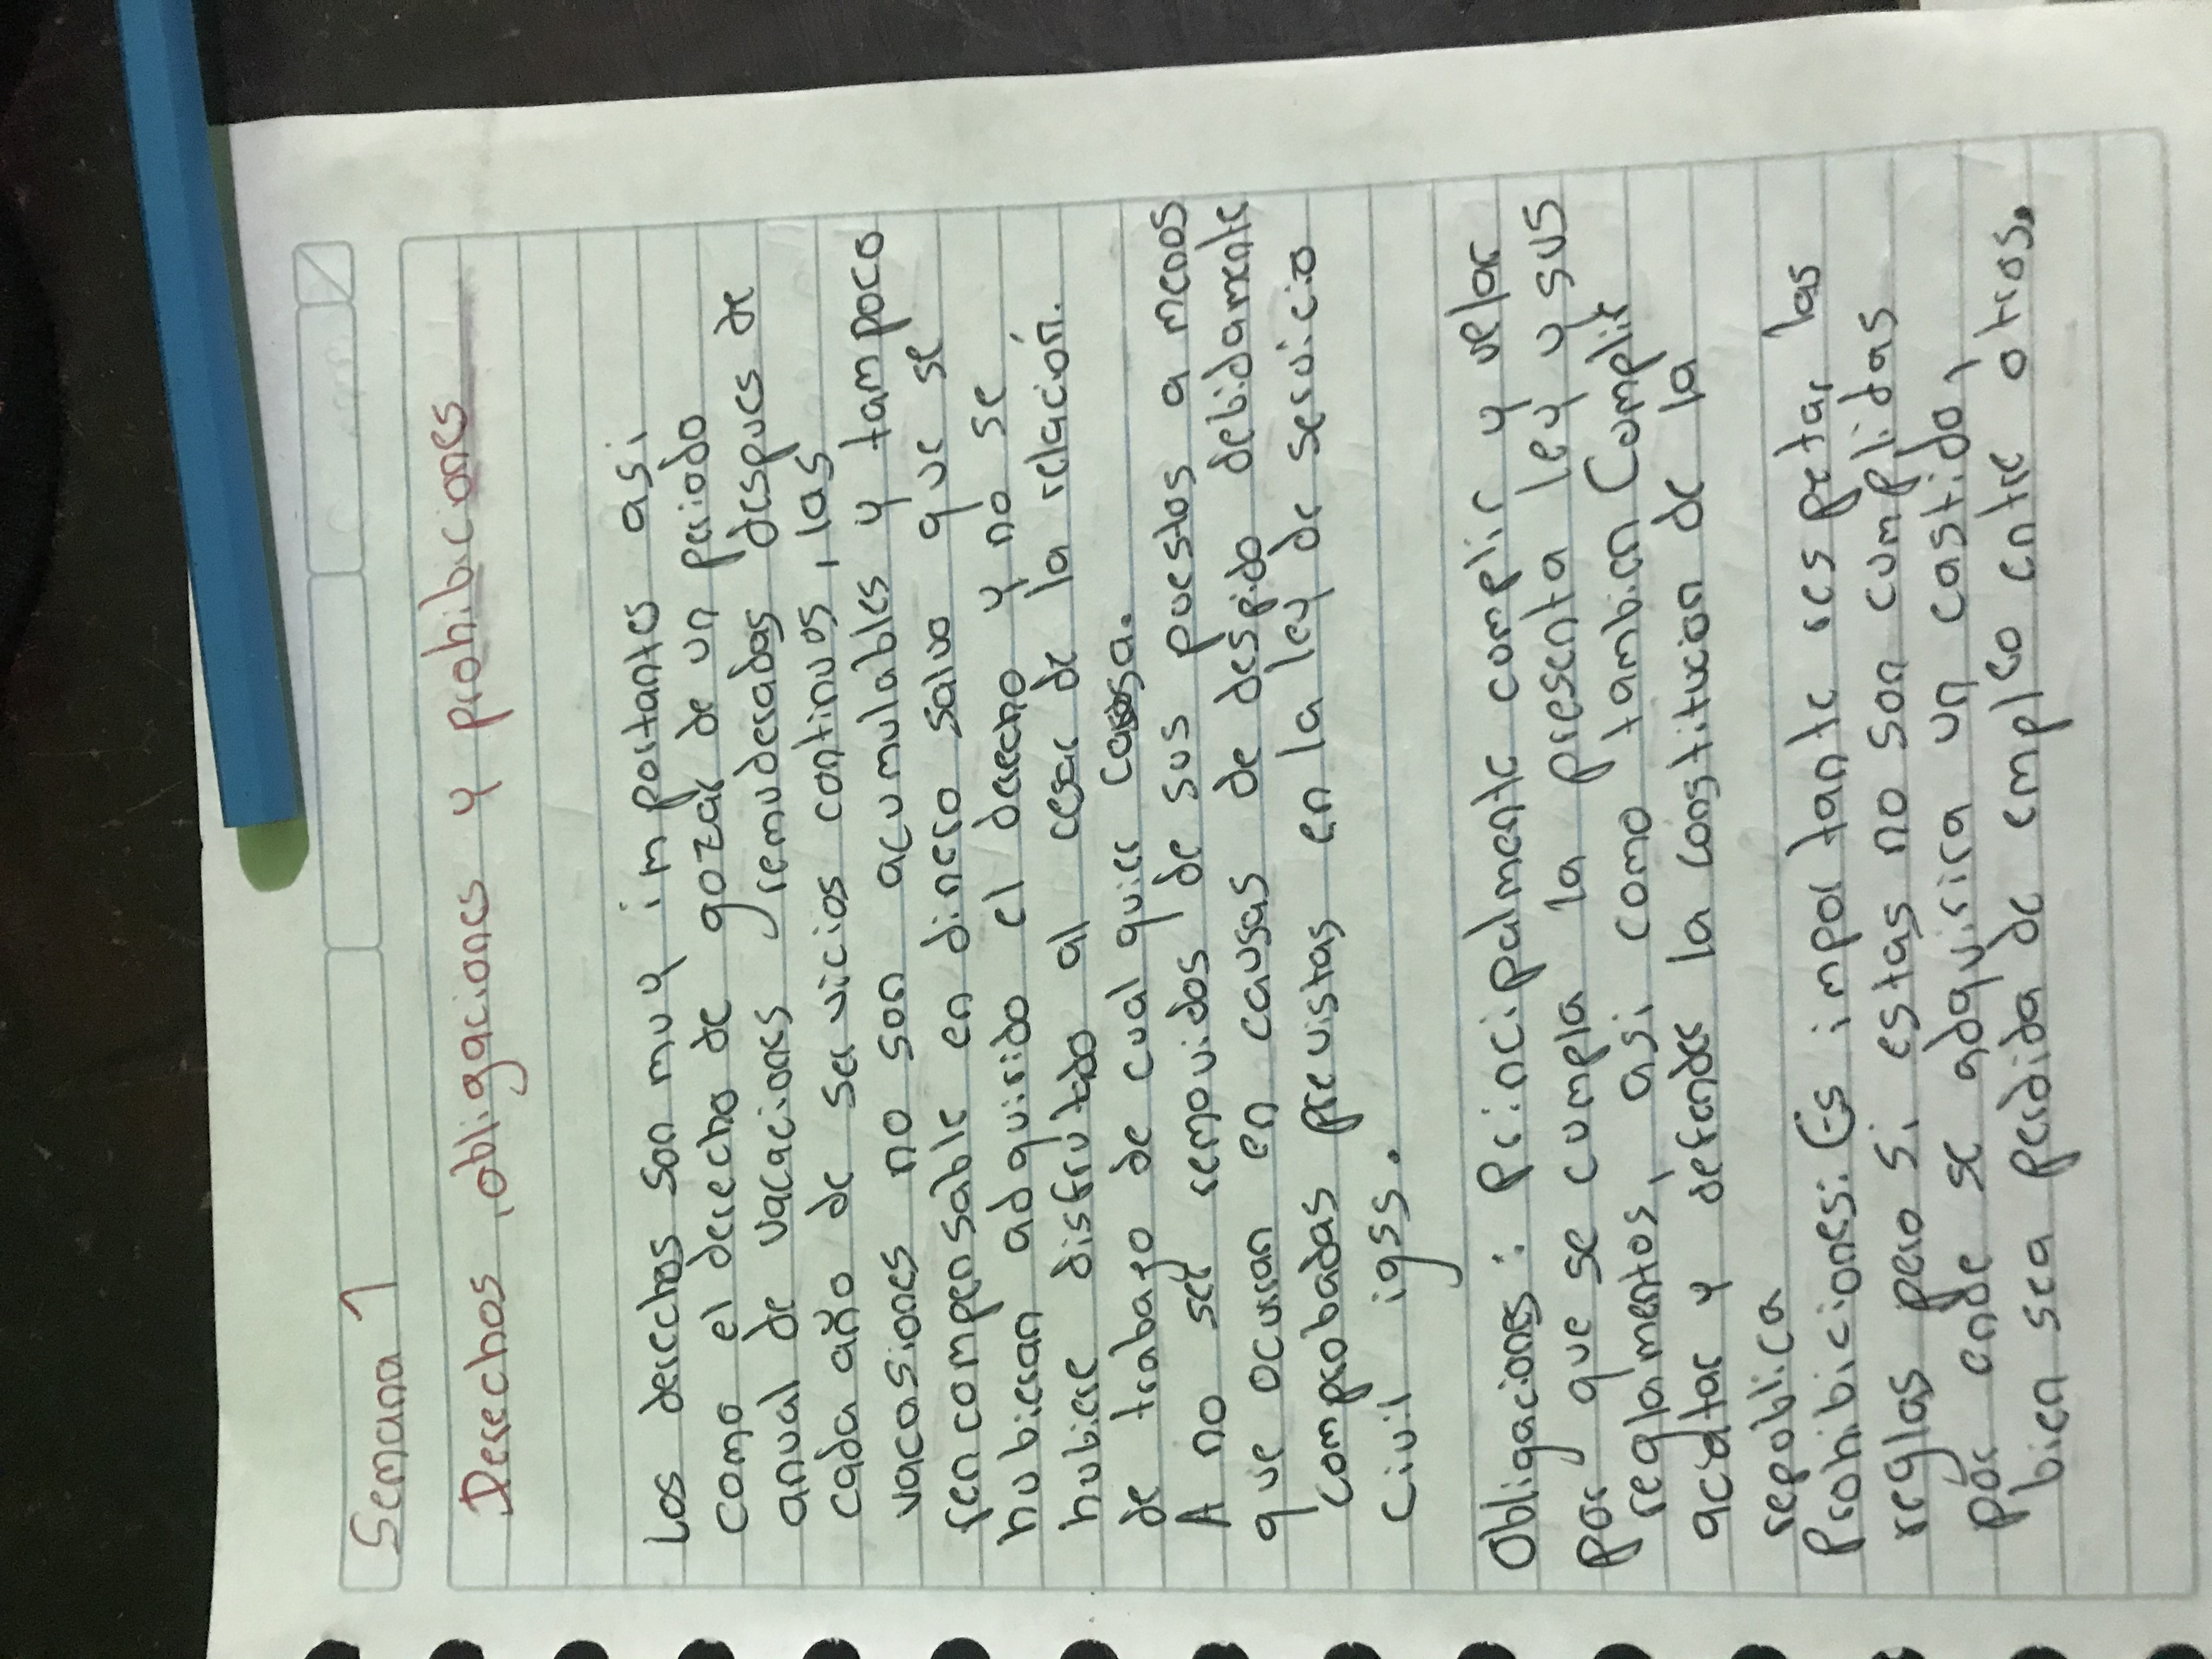 Semana 1
Derechos, obligaciones y prohibiciones
Los derechos son muy importantes asi
como el derecho de gozar de un periodo
anual de vacaciones remuderadas despues de
cada año de servicios continuos, las
vacasiones no son acumulables y tampoco
rencompensable en dinero salvo que se
hubieran adquirido el derecho y no se
hubiere disfrutado al cesar de la relación.
de trabajo de cual quier causa.
A no ser removidos de sus puestos a menos
que ocurran en causas de despido debidamente
comprobadas previstas en la ley de servicio
civil igss.
Obligaciones: Principalmente complir y velar
por que se cumpla la presenta ley y sus
reglamentos, asi como tambien Complir
acatar y defender la constitucion de la
republica
Prohibiciones: Es importante respetar las
reglas pero si estas no son cumplidas
por ende se adquirira un castido,
bien sea perdida de empleo entre otros.